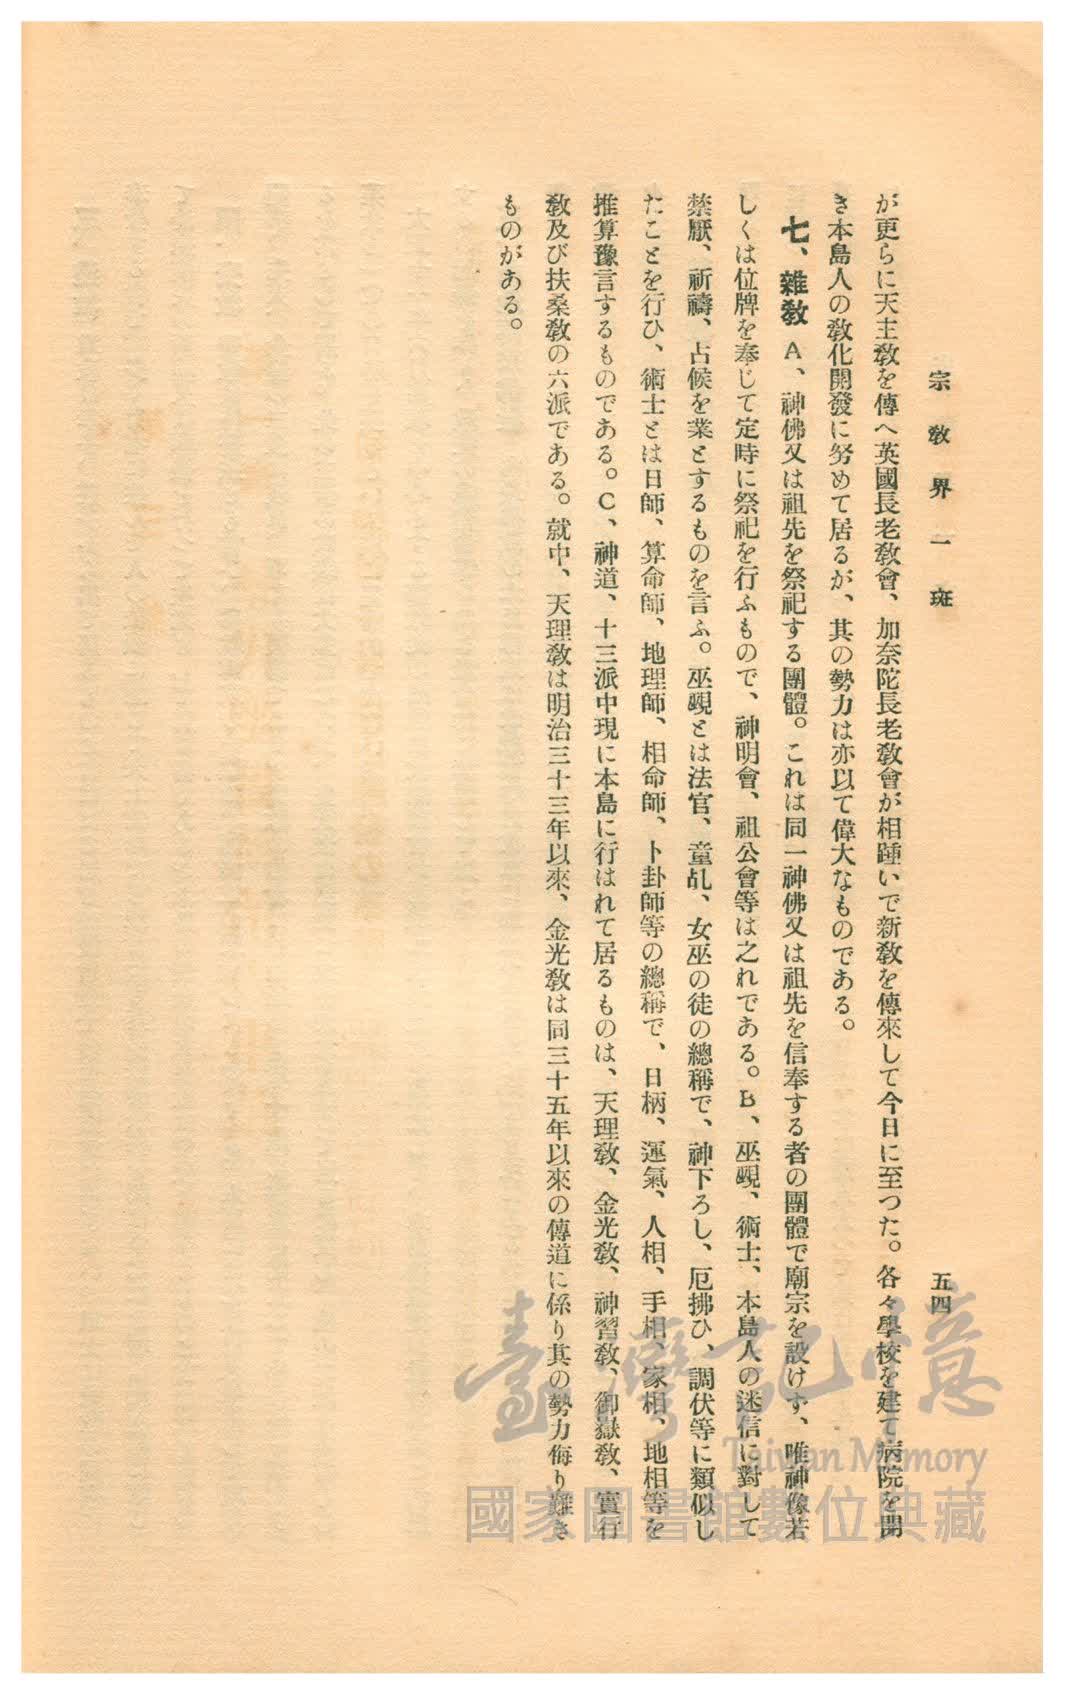 宗教界一斑
五四
が更らに天主教を傳へ英國長老教會、加奈陀長老教會が相踵いで新教を傳來して今日に至つた。各々學校を建て病院を開
き本島人の教化開發に努めて居るが、其の勢力は亦以て偉大なものである。
七、雜教 A、神佛又は祖先を祭祀する團體。これは同一神佛又は祖先を信奉する者の團體で廟宗を設けず、唯神像若
しくは位牌を奉じて定時に祭祀を行ふもので、神明會、祖公會等は之れである。B、巫覡、術士、本島人の迷信に對して
禁厭、祈禱、占候を業とするものを言ふ。巫覡とは法官、童乩、女巫の徒の總稱で、神下ろし、厄拂ひ、調伏等に類似し
たことを行ひ、術士とは日師、算命師、地理師、相命師、卜卦師等の總稱で、日柄、運氣、人相、手相、家相、地相等を
推算豫言するものである。C、神道、十三派中現に本島に行はれて居るものは、天理教、金光教、神習教、御嶽教、實行
教及び扶桑教の六派である。就中、天理教は明治三十三年以來、金光教は同三十五年以來の傳道に係り其の勢力侮り難き
ものがある。
臺灣記憶
Taiwan Memory
國家圖書館數位典藏